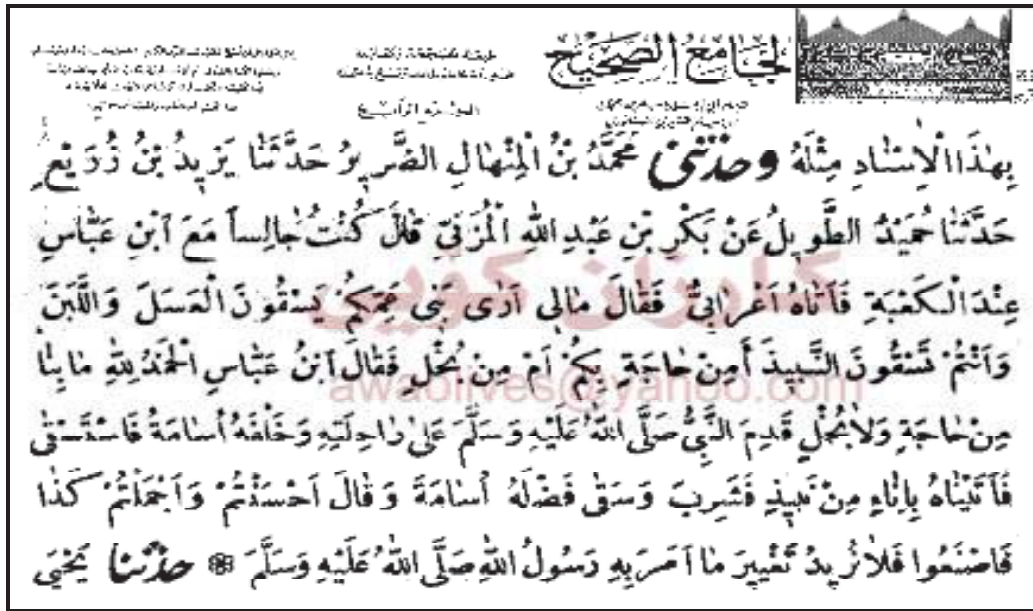 الجامع الصحيح
بِهٰذَا الْاِسْنَادِ مِثْلَهُ وحدثنى مُحَمَّدُ بْنُ الْمِنْهَالِ الضَّرِيرُ حَدَّثَنَا يَزِيدُ بْنُ زُرَيْعٍ
حَدَّثَنَا حُمَيْدٌ الطَّوِيلُ عَنْ بَكْرِ بْنِ عَبْدِ اللّٰهِ الْمُزَنِيِّ قَالَ كُنْتُ جَالِساً مَعَ ابْنِ عَبَّاسٍ
عِنْدَ الْكَعْبَةِ فَاَتَاهُ اَعْرَابِيٌّ فَقَالَ مَالِى اَرٰى بَنِى عَمِّكُمْ يَسْقُونَ الْعَسَلَ وَاللَّبَنَ
وَاَنْتُمْ تَسْقُونَ النَّبِيذَ أَمِنْ حَاجَةٍ بِكُمْ اَمْ مِنْ بُخْلٍ فَقَالَ ابْنُ عَبَّاسٍ الْحَمْدُ لِلّٰهِ مَا بِنَا
مِنْ حَاجَةٍ وَلَا بُخْلٍ قَدِمَ النَّبِىُّ صَلَّى اللّٰهُ عَلَيْهِ وَسَلَّمَ عَلٰى رَاحِلَتِهِ وَخَلْفَهُ اُسَامَةُ فَاسْتَسْقٰى
فَاَتَيْنَاهُ بِاِنَاءٍ مِنْ نَبِيذٍ فَشَرِبَ وَسَقٰى فَضْلَهُ اُسَامَةَ وَقَالَ اَحْسَنْتُمْ وَاَجْمَلْتُمْ كَذَا
فَاصْنَعُوا فَلَا نُرِيدُ تَغْيِيرَ مَا اَمَرَ بِهِ رَسُولُ اللّٰهِ صَلَّى اللّٰهُ عَلَيْهِ وَسَلَّمَ ❁ حدثنا يَحْيَى
كارزان كويى
awaolives@yahoo.com